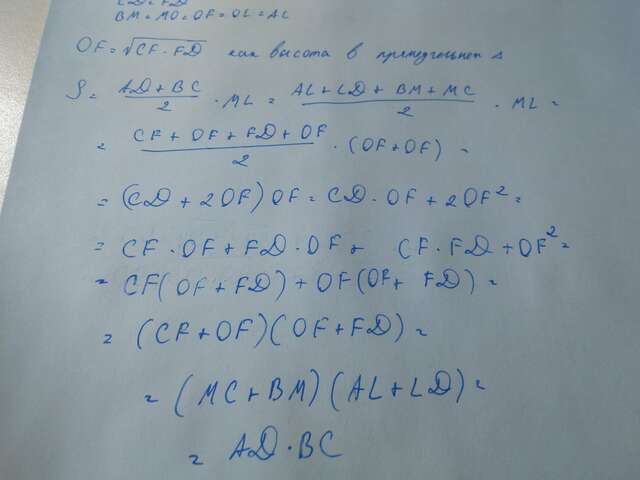 LD = FD
BM = MO = OF = OL = AL
OF = √CF · FD как высота в прямоугольном Δ
S = AD + BC / 2 · ML = AL + LD + BM + MC / 2 · ML =
= CF + OF + FD + OF / 2 · (OF + OF) =
= (CD + 2OF) OF = CD · OF + 2OF² =
= CF · OF + FD · OF + CF · FD + OF² =
= CF (OF + FD) + OF (OF + FD) =
= (CF + OF) (OF + FD) =
= (MC + BM) (AL + LD) =
= AD · BC